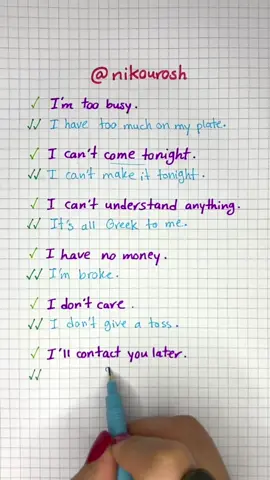 @nikourosh
✓ I'm too busy.
✓✓ I have too much on my plate.
✓ I can't come tonight.
✓✓ I can't make it tonight.
✓ I can't understand anything.
✓✓ It's all Greek to me.
✓ I have no money.
✓✓ I'm broke.
✓ I don't care.
✓✓ I don't give a toss.
✓ I'll contact you later.
✓✓